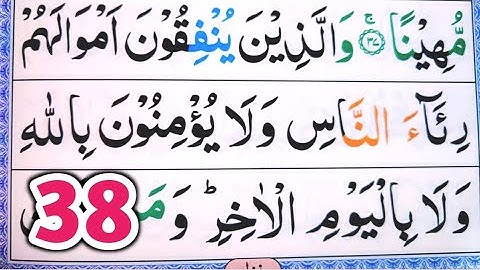 مُّهِيْنًا ۚ ﴿۳۷﴾ وَالَّذِيْنَ يُنْفِقُوْنَ اَمْوَالَهُمْ
رِئَآءَ النَّاسِ وَلَا يُؤْمِنُوْنَ بِاللّٰهِ
وَلَا بِالْيَوْمِ الْاٰخِرِ ؕ وَمَ
38